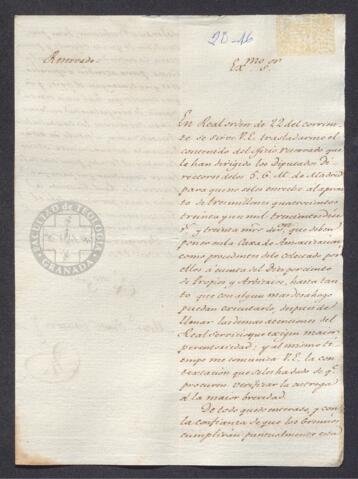 20-16
Reservado.
Exmo. Sr.
En Real orden de 22 del corrien-
te se sirve V.E. trasladarme el
contenido del oficio reservado que
le han dirigido los Diputados Di-
rectores de los 5. G. M. de Madrid
para que no se les estreche al apron-
to de tres millones quatrocientos
treinta y un mil trescientos diez
y treinta mrs. que deben
poner en la Caxa de Amortizacion
como procedentes de lo colectado por
ellos à cuenta del Diez por ciento
de Propios y Arbitrios, hasta tan-
to que con algun mas desahogo
puedan executarlo, despues de
llenar las demas atenciones del
Real Servicio que exigen maior
perentoriedad; y al mismo ti-
empo me comunica V.E. la con-
textacion que se les ha dado de qe.
procuren verificar la entrega
à la maior brevedad.
De todo quedo enterado, y con
la confianza de que los Gremios
cumplirán puntualmente esta
FACULTAD de TEOLOGIA
GRANADA